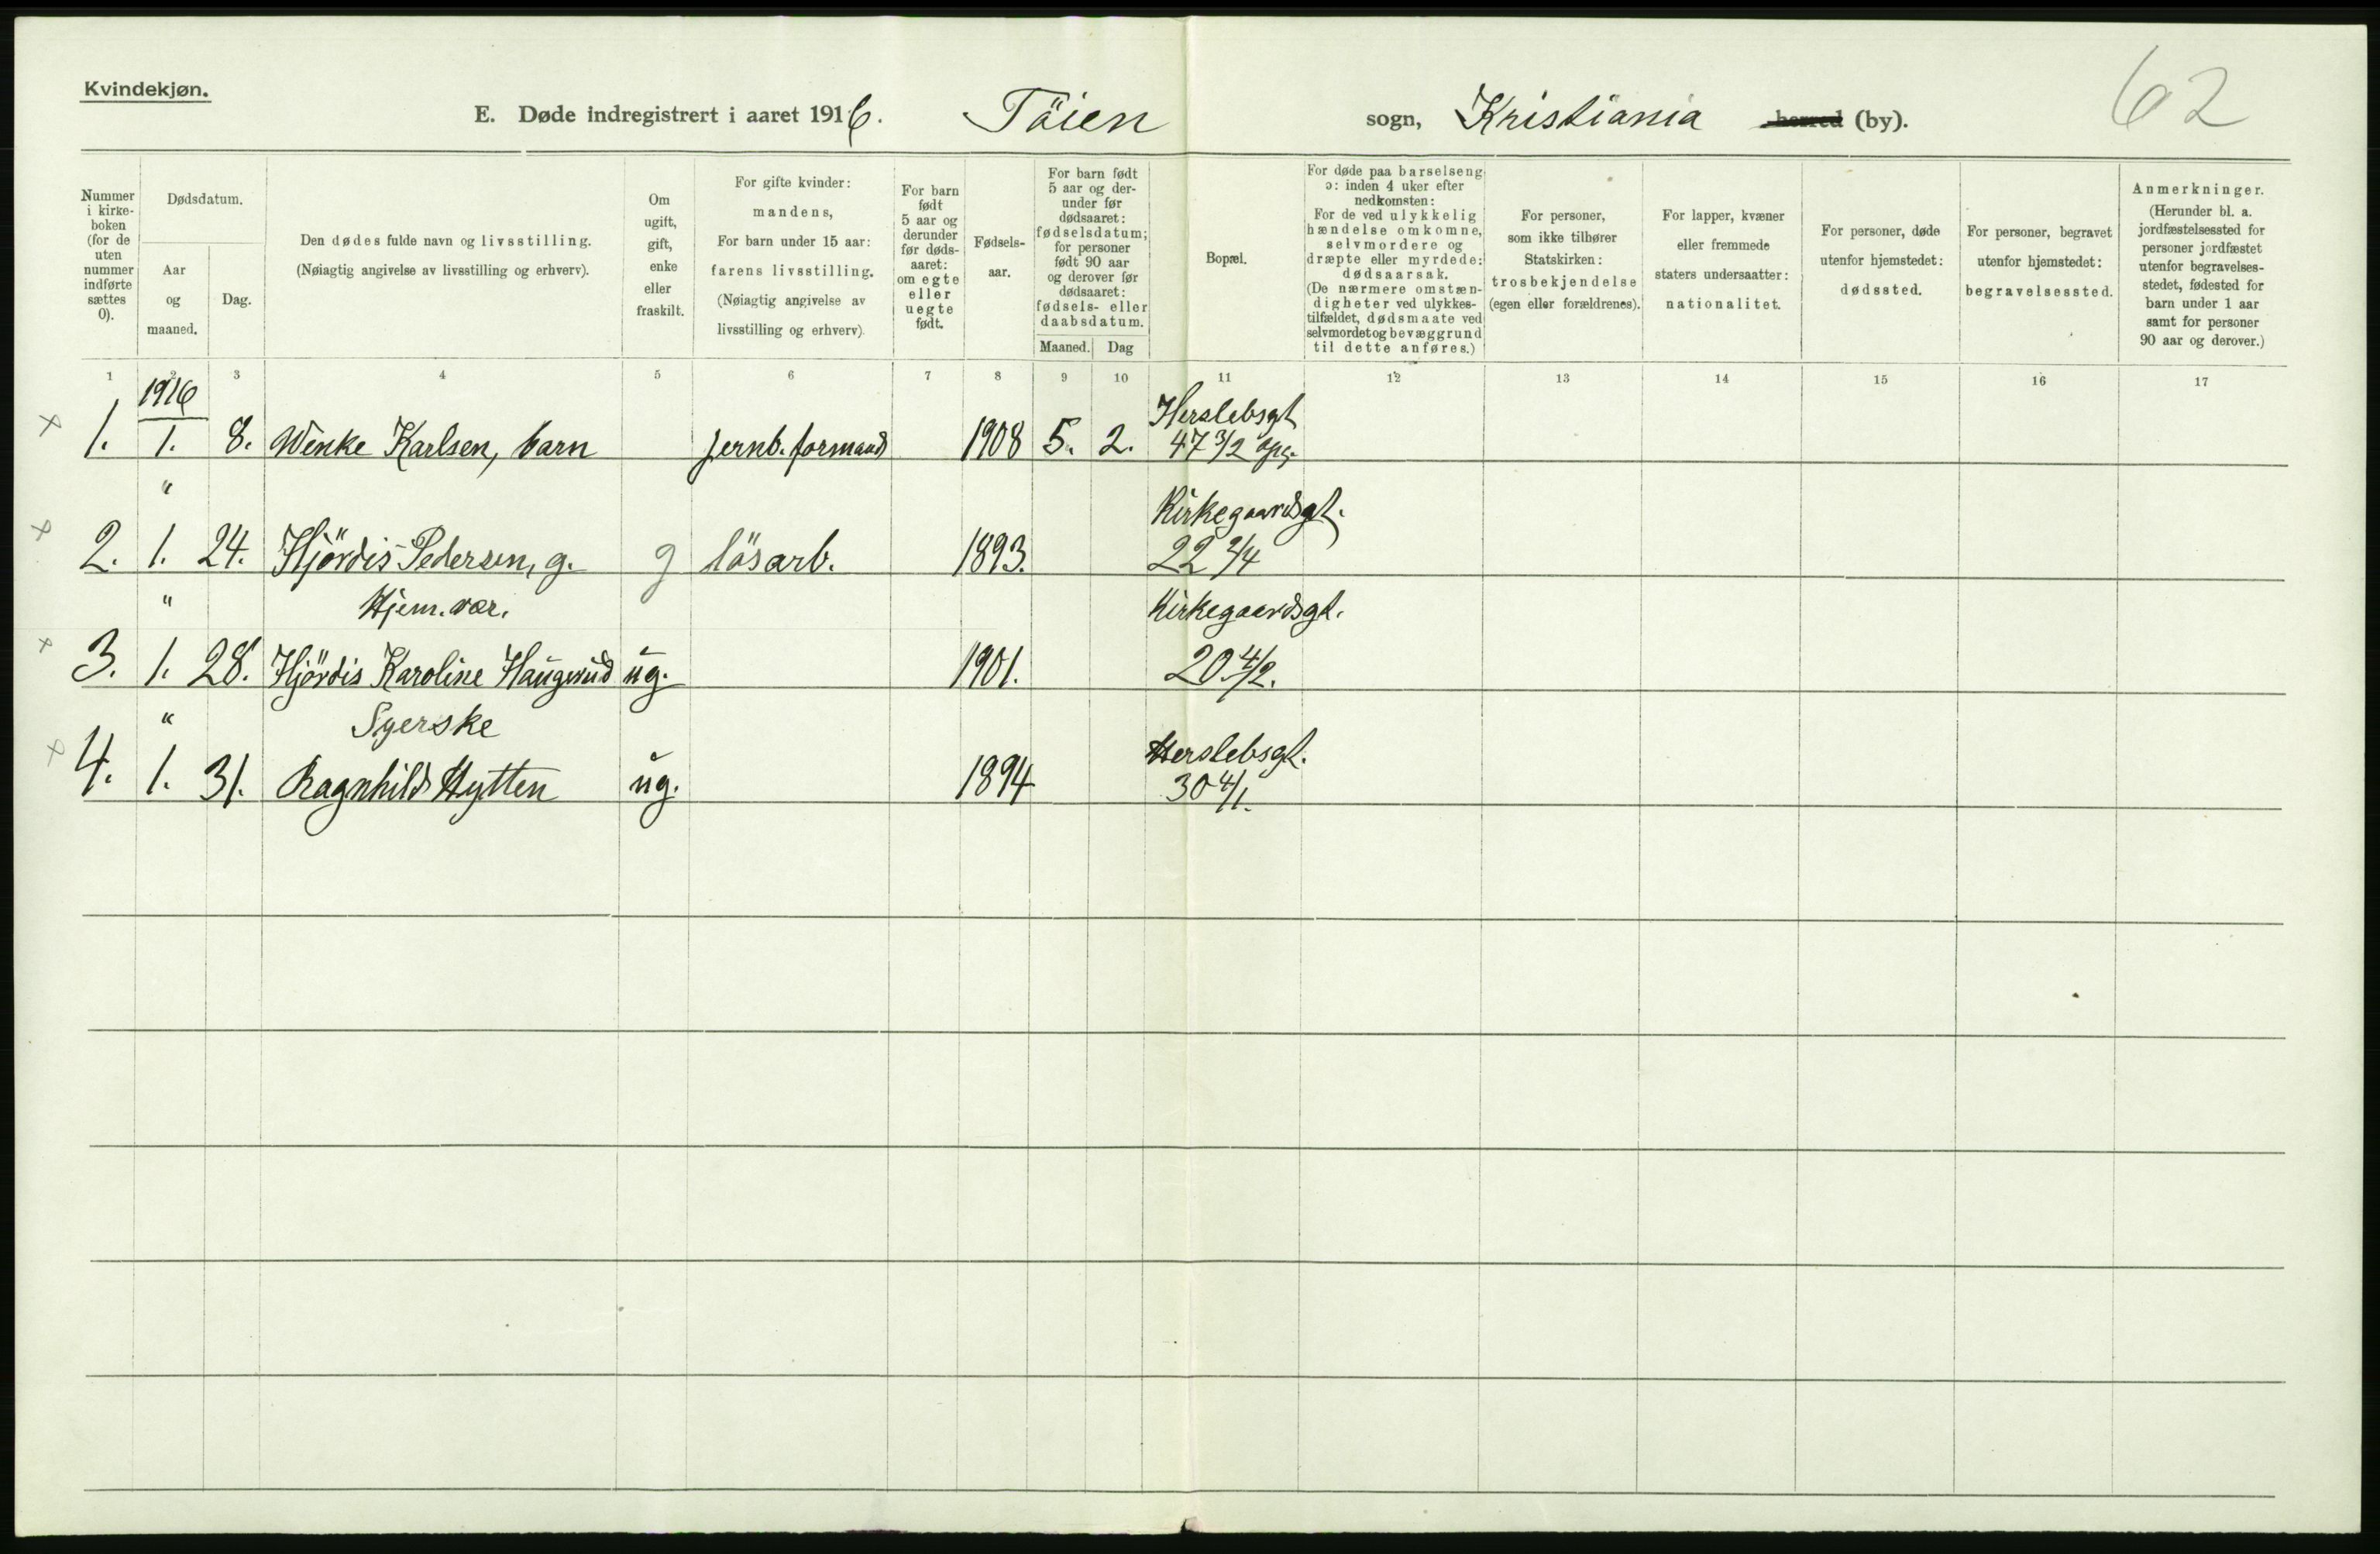 Kvindekjøn.
E. Døde indregistrert i aaret 1916. Töien sogn, Kristiania herred (by). 62
Nummer i kirkeboken (for de uten nummer indførte sættes 0).
Dødsdatum.
Aar og maaned.
Dag.
Den dødes fulde navn og livsstilling.
(Nøiagtig angivelse av livsstilling og erhverv).
Om ugift, gift, enke eller fraskilt.
For gifte kvinder:
mandens,
For barn under 15 aar:
farens livsstilling.
(Nøiagtig angivelse av
livsstilling og erhverv)
For barn født 5 aar og derunder før dødsaaret: om egte eller uegte født.
Fødselsaar.
For barn født 5 aar og derunder før dødsaaret: fødselsdatum; for personer født 90 aar og derover før dødsaaret: fødsels- eller daabsdatum.
Maaned. Dag
Bopæl.
For døde paa barselseng
ɔ: inden 4 uker efter
nedkomsten:
For de ved ulykkelig
hændelse omkomne,
selvmordere og
dræpte eller myrdede:
dødsaarsak.
(De nærmere omstæn-
digheter ved ulykkes-
tilfældet, dødsmaate ved
selvmordet og bevæggrund
til dette anføres.)
For personer,
som ikke tilhører
Statskirken:
trosbekjendelse
(egen eller forældrenes).
For lapper, kvæner
eller fremmede
staters undersaatter:
nationalitet.
For personer, døde
utenfor hjemstedet:
dødssted.
For personer, begravet
utenfor hjemstedet:
begravelsessted.
Anmerkninger.
(Herunder bl. a.
jordfæstelsessted for
personer jordfæstet
utenfor begravelses-
stedet, fødested for
barn under 1 aar
samt for personer
90 aar og derover.)
1 2 3 4 5 6 7 8 9 10 11 12 13 14 15 16 17
1916 Herslebsgt
x 1. 1. 8. Wenke Karlsen, barn jernb. formand 1908 5. 2. 47 3/2 opg.
" Kirkegaardsgt.
x 2. 1. 24. Hjördis Pedersen, g. g lösarb. 1893. 22 2/4
" Hjem. vær. Kirkegaardsgt.
x 3. 1. 28. Hjördis Karoline Haugerud ug. 1901. 20 4/2.
" Syerske Herslebsgt.
x 4. 1. 31. Ragnhild Hytten ug. 1894 30 4/1.